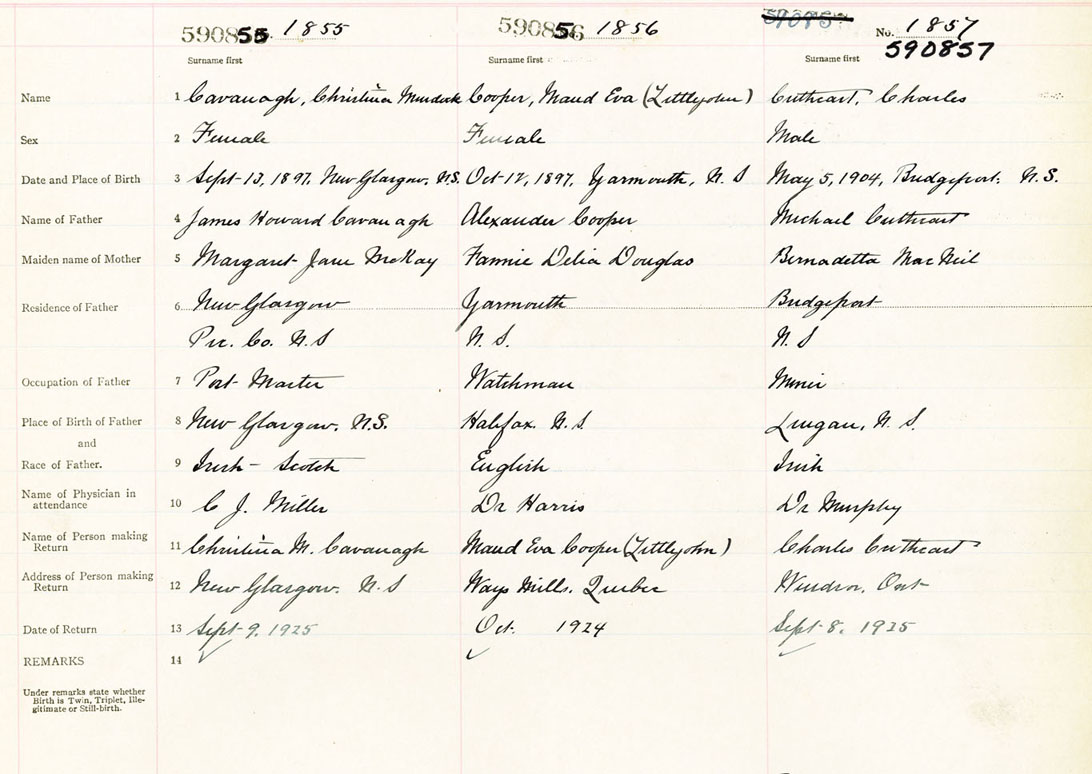 590855 1855 590856 1856 59085 No. 1857
590857
Surname first Surname first Surname first
Name 1 Cavanagh, Christina Murdock Cooper, Maud Eva (Littlejohn) Cuthcart, Charles
Sex 2 Female Female Male
Date and Place of Birth 3 Sept 13, 1897, New Glasgow, N.S. Oct 17, 1897, Yarmouth, N. S May 5, 1904, Bridgeport, N.S.
Name of Father 4 James Howard Cavanagh Alexander Cooper Michael Cuthcart
Maiden name of Mother 5 Margaret Jane McKay Fannie Delia Douglas Bernadetta MacNeil
Residence of Father 6 New Glasgow Yarmouth Bridgeport
Pic. Co. N.S N. S. N. S
Occupation of Father 7 Post Master Watchman Miner
Place of Birth of Father 8 New Glasgow, N.S. Halifax N. S Lingan, N. S.
and
Race of Father. 9 Irish - Scotch English Irish
Name of Physician in
attendance 10 C J. Miller Dr Harris Dr Murphy
Name of Person making
Return 11 Christina M. Cavanagh Maud Eva Cooper (Littlejohn) Charles Cuthcart
Address of Person making
Return 12 New Glasgow. N. S Ways Mills, Quebec Windsor, Ont
Date of Return 13 Sept 9. 1925 Oct. 1924 Sept 8. 1925
REMARKS 14
Under remarks state whether
Birth is Twin, Triplet, Ille-
gitimate or Still-birth.